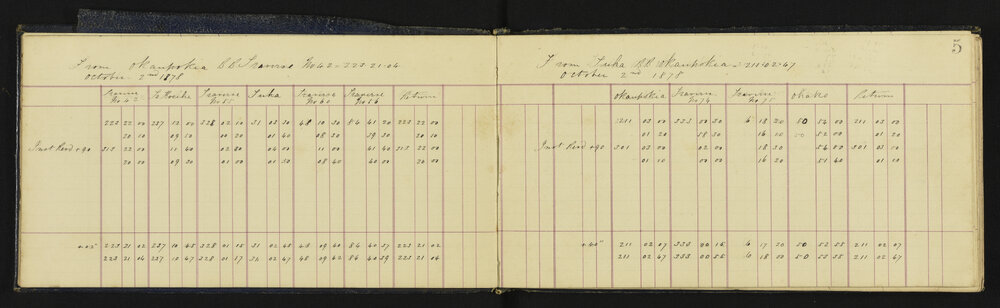 From Okaupokia BB Traverse No 42 = 223.21.04
October 2nd 1878
Traverse No 42 Traverse No 55 Tuka Traverse No 60 Traverse No 56 Return
223 22 00 237 12 00 328 02 10 31 03 30 48 10 30 84 41 20 223 22 00
20 10 09 50 00 20 01 40 08 30 39 30 20 10
Inst Revd +90 313 22 00 11 40 02 20 04 00 11 00 41 40 313 22 00
20 20 09 30 01 00 01 50 08 40 40 00 20
+05" 223 21 02 237 10 45 328 01 15 31 02 45 48 09 40 84 40 37 223 21 02
223 21 04 237 10 47 328 01 17 31 02 47 48 09 42 84 40 39 223 21 04
5
From Tuka BB Okaupokia = 211.02.47
October 2nd 1878
Okaupokia Traverse No 74 Traverse No 75 Ohako Return
211 03 00 333 00 30 6 18 20 50 54 00 211 03 00
01 20 16 10 50 52 00 01 20
Inst Revd +90 301 03 00 02 00 18 30 54 00 301 03 00
01 10 00 00 16 20 51 40 01 10
+40" 211 02 07 333 00 15 6 17 20 50 52 55 211 02 07
211 02 47 333 00 55 6 18 00 50 53 35 211 02 47